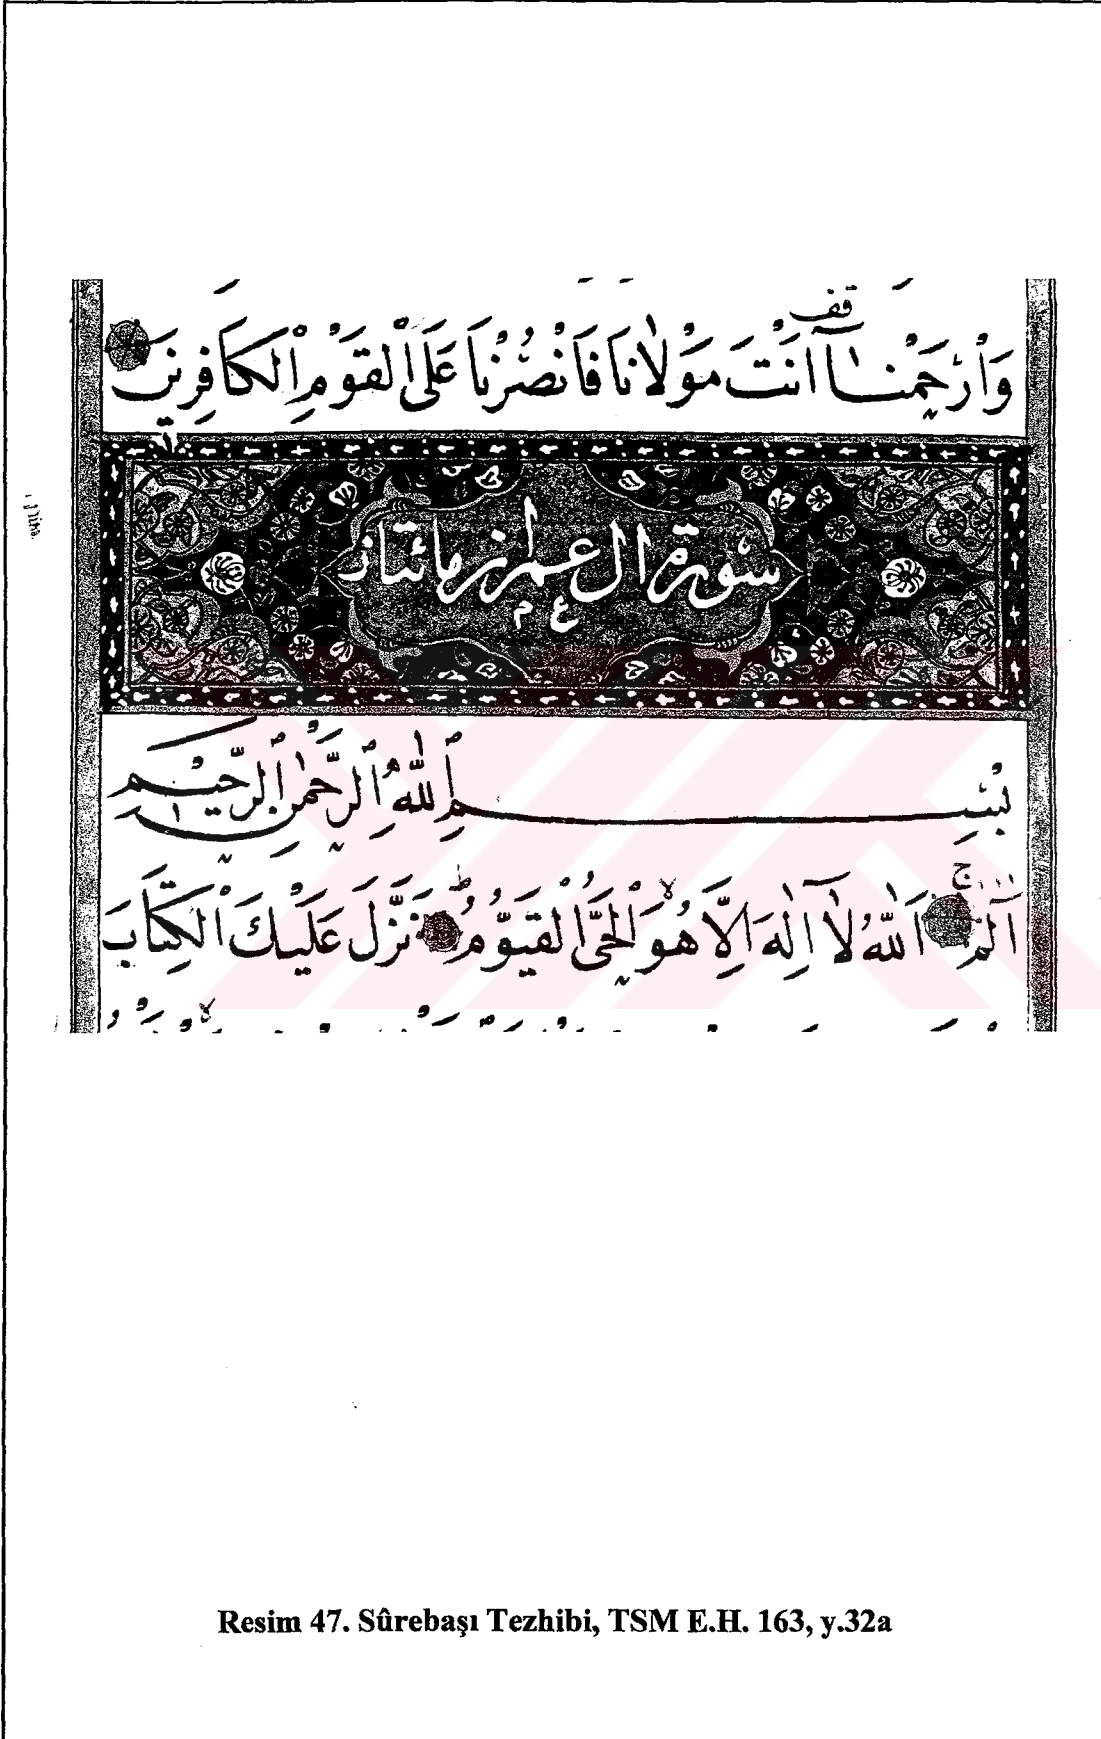 وَارْحَمْنَا آَنْتَ مَوْلٰانَا فَانْصُرْنَا عَلَى الْقَوْمِ الْكَافِرِينَ
سورة ال عمران مائتان
بِسْمِ ٱللّٰهِ ٱلرَّحْمٰنِ ٱلرَّحِيمِ
الٓمٓ اَللّٰهُ لَآ اِلٰهَ اِلَّا هُوَ الْحَيُّ الْقَيُّومُ نَزَّلَ عَلَيْكَ الْكِتَابَ
Resim 47. Sûrebaşı Tezhibi, TSM E.H. 163, y.32a